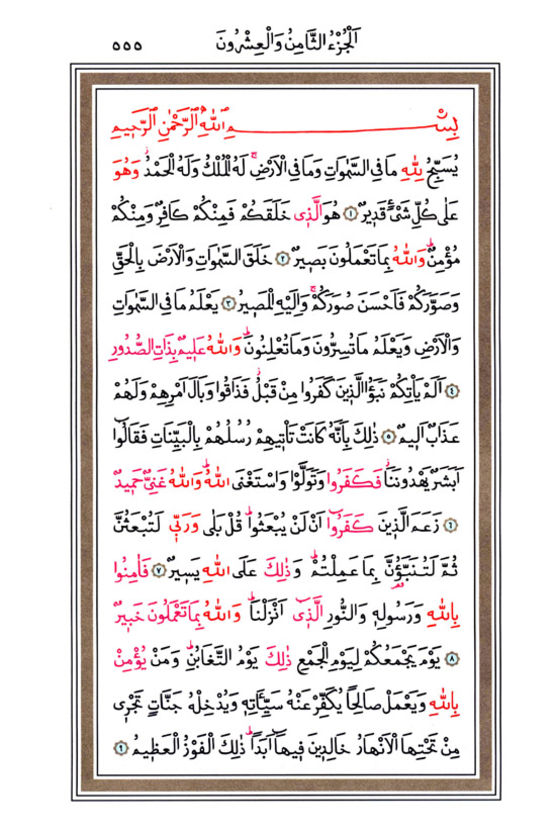 اَلْجُزْءُ الثَّامِنُ وَالْعِشْرُونَ ٥٥٥
بِسْمِ اللّٰهِ الرَّحْمٰنِ الرَّحٖيمِ
يُسَبِّحُ لِلّٰهِ مَا فِى السَّمٰوَاتِ وَمَا فِى الْاَرْضِۚ لَهُ الْمُلْكُ وَلَهُ الْحَمْدُۘ وَهُوَ
عَلٰى كُلِّ شَىْءٍ قَدٖيرٌ ﴿١﴾ هُوَ الَّذٖى خَلَقَكُمْ فَمِنْكُمْ كَافِرٌ وَمِنْكُمْ
مُؤْمِنٌۜ وَاللّٰهُ بِمَا تَعْمَلُونَ بَصٖيرٌ ﴿٢﴾ خَلَقَ السَّمٰوَاتِ وَالْاَرْضَ بِالْحَقِّ
وَصَوَّرَكُمْ فَاَحْسَنَ صُوَرَكُمْۚ وَاِلَيْهِ الْمَصٖيرُ ﴿٣﴾ يَعْلَمُ مَا فِى السَّمٰوَاتِ
وَالْاَرْضِ وَيَعْلَمُ مَا تُسِرُّونَ وَمَا تُعْلِنُونَۜ وَاللّٰهُ عَلٖيمٌ بِذَاتِ الصُّدُورِ
﴿٤﴾ اَلَمْ يَاْتِكُمْ نَبَؤُا الَّذٖينَ كَفَرُوا مِنْ قَبْلُۘ فَذَاقُوا وَبَالَ اَمْرِهِمْ وَلَهُمْ
عَذَابٌ اَلٖيمٌ ﴿٥﴾ ذٰلِكَ بِاَنَّهُ كَانَتْ تَاْتٖيهِمْ رُسُلُهُمْ بِالْبَيِّنَاتِ فَقَالُٓوا
اَبَشَرٌ يَهْدُونَنَاۘ فَكَفَرُوا وَتَوَلَّوْا وَاسْتَغْنَى اللّٰهُۜ وَاللّٰهُ غَنِىٌّ حَمٖيدٌ
﴿٦﴾ زَعَمَ الَّذٖينَ كَفَرُٓوا اَنْ لَنْ يُبْعَثُواۜ قُلْ بَلٰى وَرَبّٖى لَتُبْعَثُنَّ
ثُمَّ لَتُنَبَّؤُنَّ بِمَا عَمِلْتُمْۜ وَذٰلِكَ عَلَى اللّٰهِ يَسٖيرٌ ﴿٧﴾ فَاٰمِنُوا
بِاللّٰهِ وَرَسُولِهٖ وَالنُّورِ الَّذٖٓى اَنْزَلْنَاۜ وَاللّٰهُ بِمَا تَعْمَلُونَ خَبٖيرٌ
﴿٨﴾ يَوْمَ يَجْمَعُكُمْ لِيَوْمِ الْجَمْعِ ذٰلِكَ يَوْمُ التَّغَابُنِۜ وَمَنْ يُؤْمِنْ
بِاللّٰهِ وَيَعْمَلْ صَالِحًا يُكَفِّرْ عَنْهُ سَيِّـَٔاتِهٖ وَيُدْخِلْهُ جَنَّاتٍ تَجْرٖى
مِنْ تَحْتِهَا الْاَنْهَارُ خَالِدٖينَ فٖيهَٓا اَبَدًاۜ ذٰلِكَ الْفَوْزُ الْعَظٖيمُ ﴿٩﴾